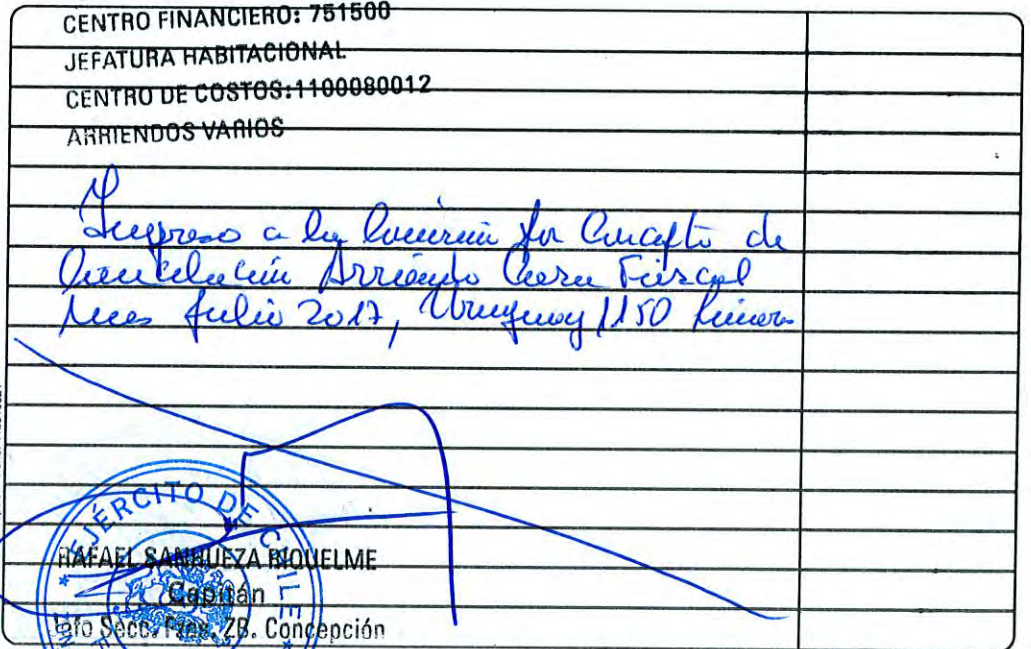 CENTRO FINANCIERO: 751500
JEFATURA HABITACIONAL
CENTRO DE COSTOS:1100080012
ARRIENDOS VARIOS
Ingreso a la por Concepto de
Cancelación Arriendo Casa Fiscal
Mes Julio 2017, Uruguay 1150 Linares
EJÉRCITO DE CHILE
RAFAEL SANHUEZA RIQUELME
Capitán
Jefo Secc. Fzas. ZB. Concepción